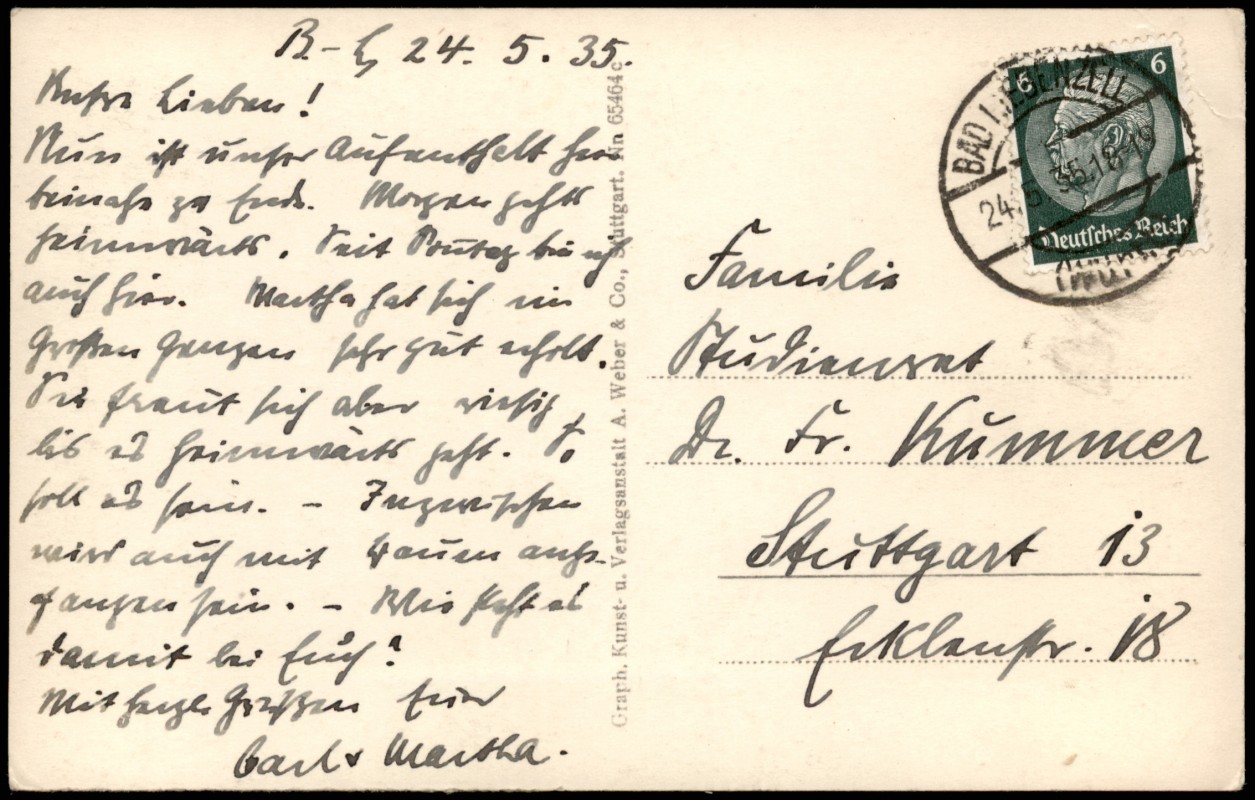 B.-L, 24. 5. 35.
Unsre Lieben!
Nun ist unser Aufenthalt hier
beinahe zu Ende. Morgen gehts
heimwärts. Seit Sonntag bin ich
auch hier. Martha hat sich im
Großen Ganzen sehr gut erholt.
Sie freut sich aber riesig
bis es heimwärts geht. So
soll es sein. – Inzwischen
wird auch mit Bauen ange-
fangen sein. – Wie steht es
damit bei Euch?
Mit herzl. Grüßen Eure
Carl & Martha.
Graph. Kunst- u. Verlagsanstalt A. Weber & Co., Stuttgart. Nn 65464 c
6 6
Deutsches Reich
BAD LIEBENZELL
24.5.35.18-19
Familie
Studienrat
Dr. Fr. Kummer
Stuttgart 13
Ecklenstr. 18